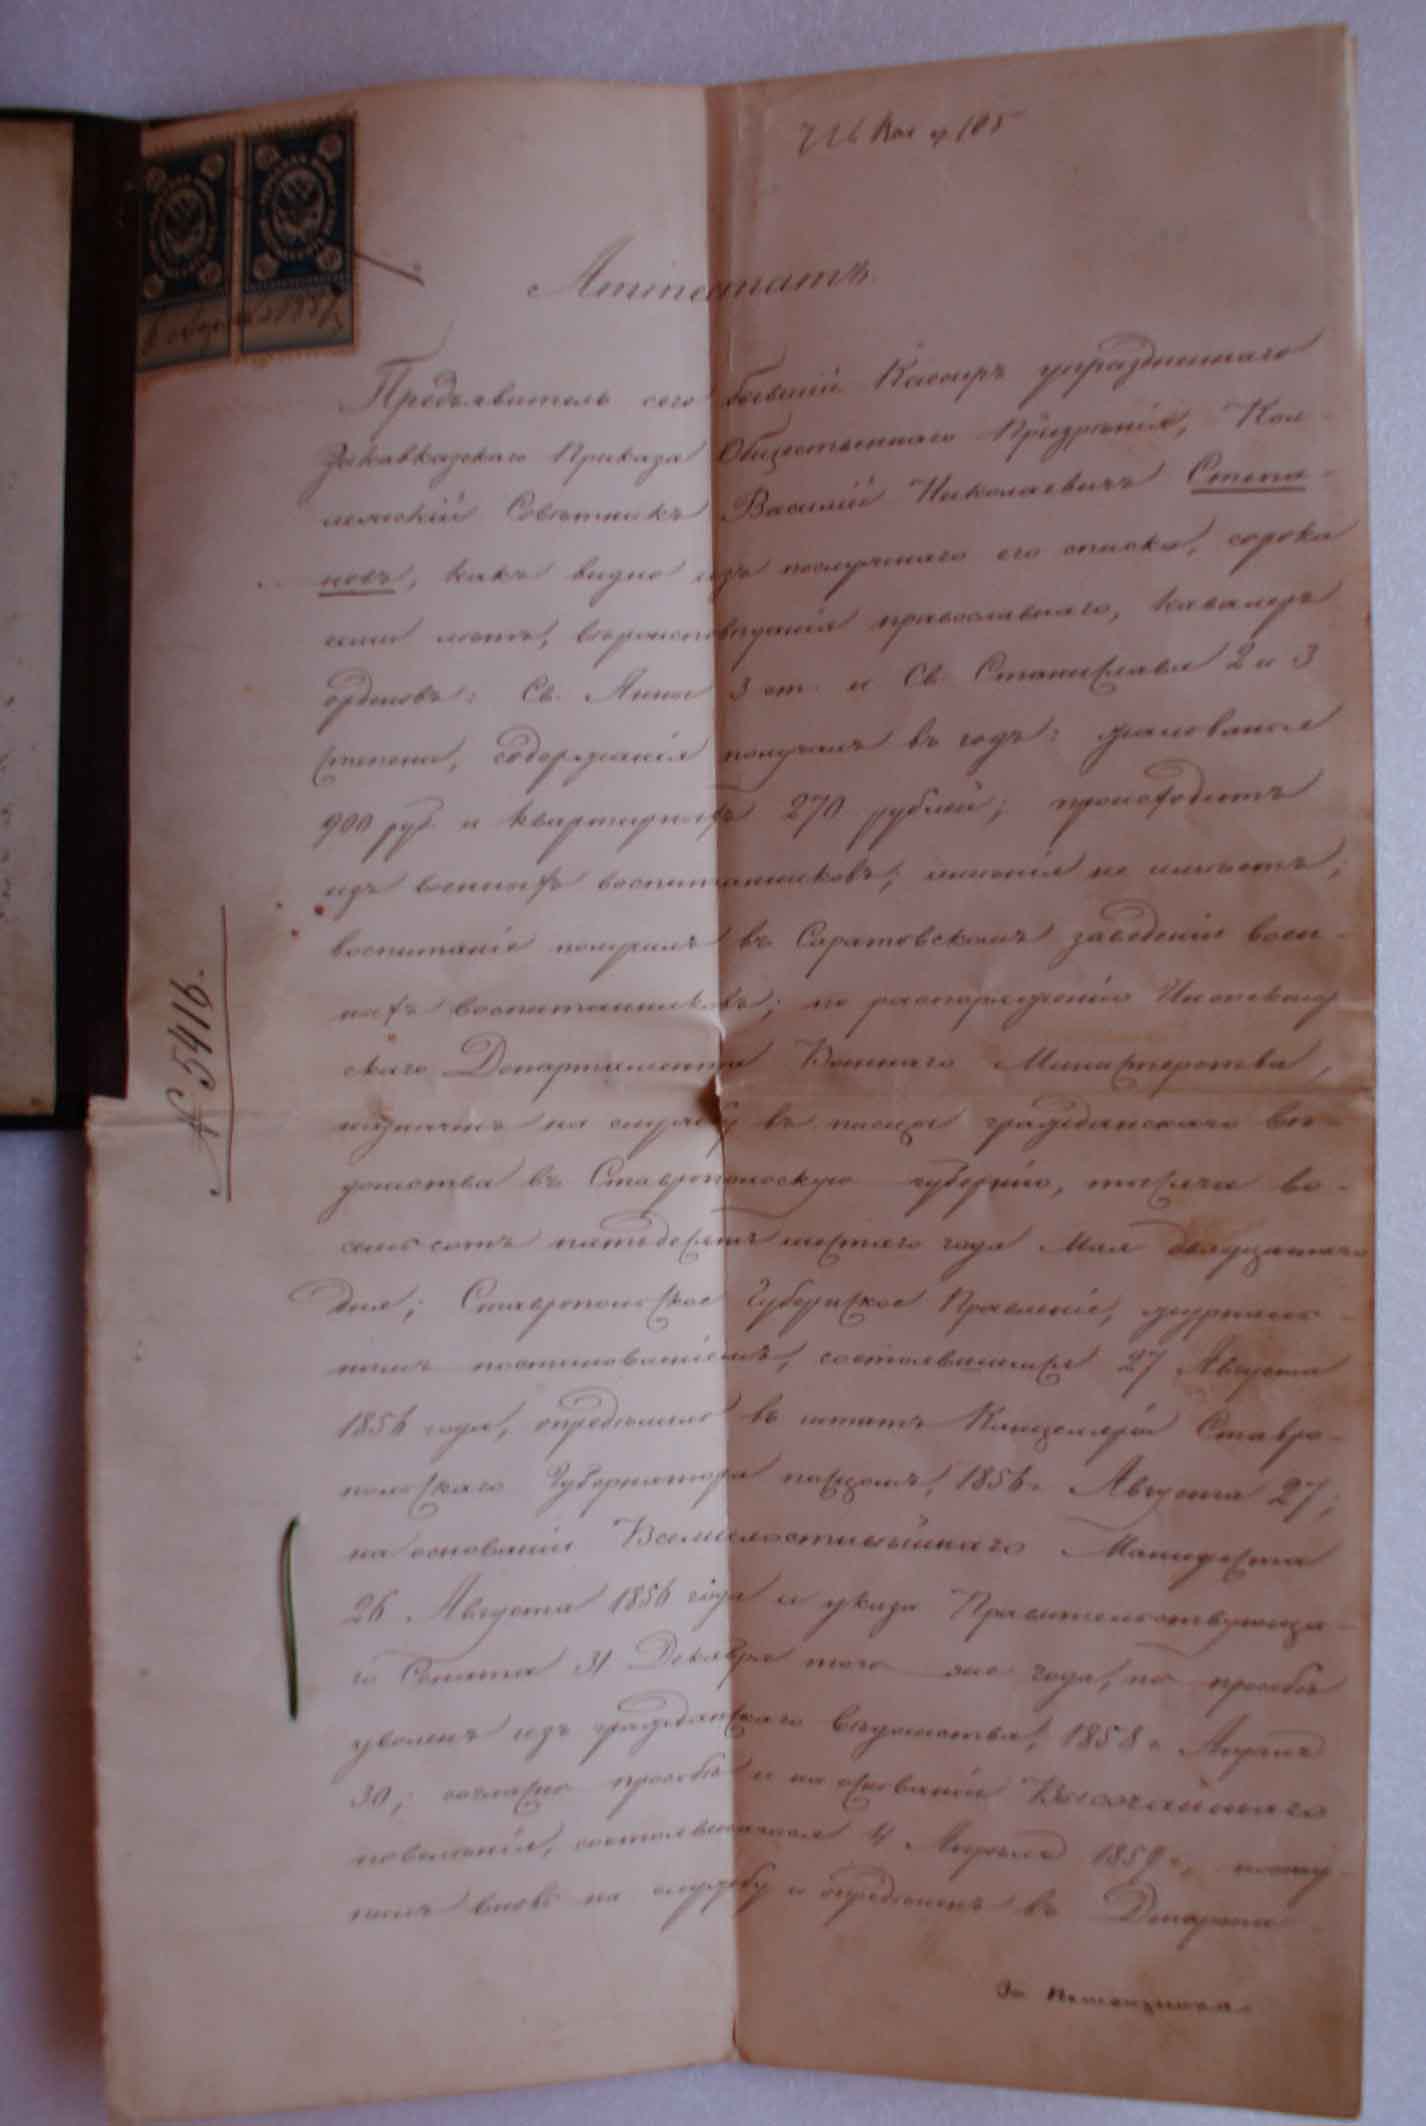 Аттестатъ.
Предъявитель сего бывшій Кассиръ упраздненнаго
Закавказскаго Приказа Общественнаго Призрѣнія, Кол-
лежскій Совѣтникъ Василій Николаевичъ Степа-
новъ, какъ видно изъ послужнаго его списка, сорока
лѣтъ, вѣроисповѣданія православнаго, кавалеръ
орденовъ: Св. Анны 3 ст. и Св. Станислава 2 и 3
степени, содержанія получалъ въ годъ: жалованья
900 руб. и квартирныхъ 270 рублей; происходитъ
изъ военныхъ воспитанниковъ; имѣнія не имѣетъ;
воспитаніе получилъ въ Саратовскомъ заведеніи воен-
ныхъ воспитанниковъ; по распоряженію Инспектор-
скаго Департамента Военнаго Министерства,
назначенъ на службу въ писцы гражданскаго вѣ-
домства въ Ставропольскую губернію, тысяча во-
семьсотъ пятьдесятъ шестаго года Мая двадцатаго
дня; Ставропольское Губернское Правленіе, журналь-
нымъ постановленіемъ, состоявшимся 27 Августа
1856 года, опредѣлило въ штатъ Канцеляріи Ставро-
польскаго Губернатора писцомъ, 1856 г. Августа 27;
на основаніи Всемилостивѣйшаго Манифеста
26 Августа 1856 года и указа Правительствующа-
го Сената 31 Декабря того же года, по просьбѣ
уволенъ изъ гражданскаго вѣдомства, 1858 г. Апрѣля
30; согласно просьбѣ и на основаніи Высочайшаго
повелѣнія, состоявшагося 4 Апрѣля 1859 г., посту-
пилъ вновь на службу и опредѣленъ въ Департа-
№ 5416.